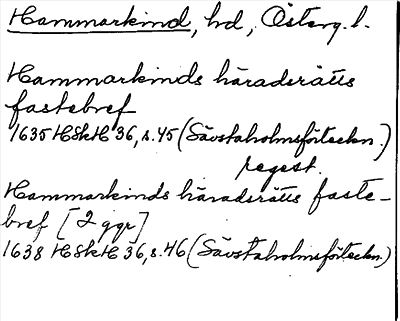 Hammarkind, hd, Österg. l.
Hammarkinds häradsrätts
fastebref
1635 HSkH 36, s. 45 (Sävstaholmsförteckn.)
regest.
Hammarkinds häradsrätts faste-
bref [2 ggr]
1638 HSkH 36, s. 46 (Sävstaholmsförteckn.)